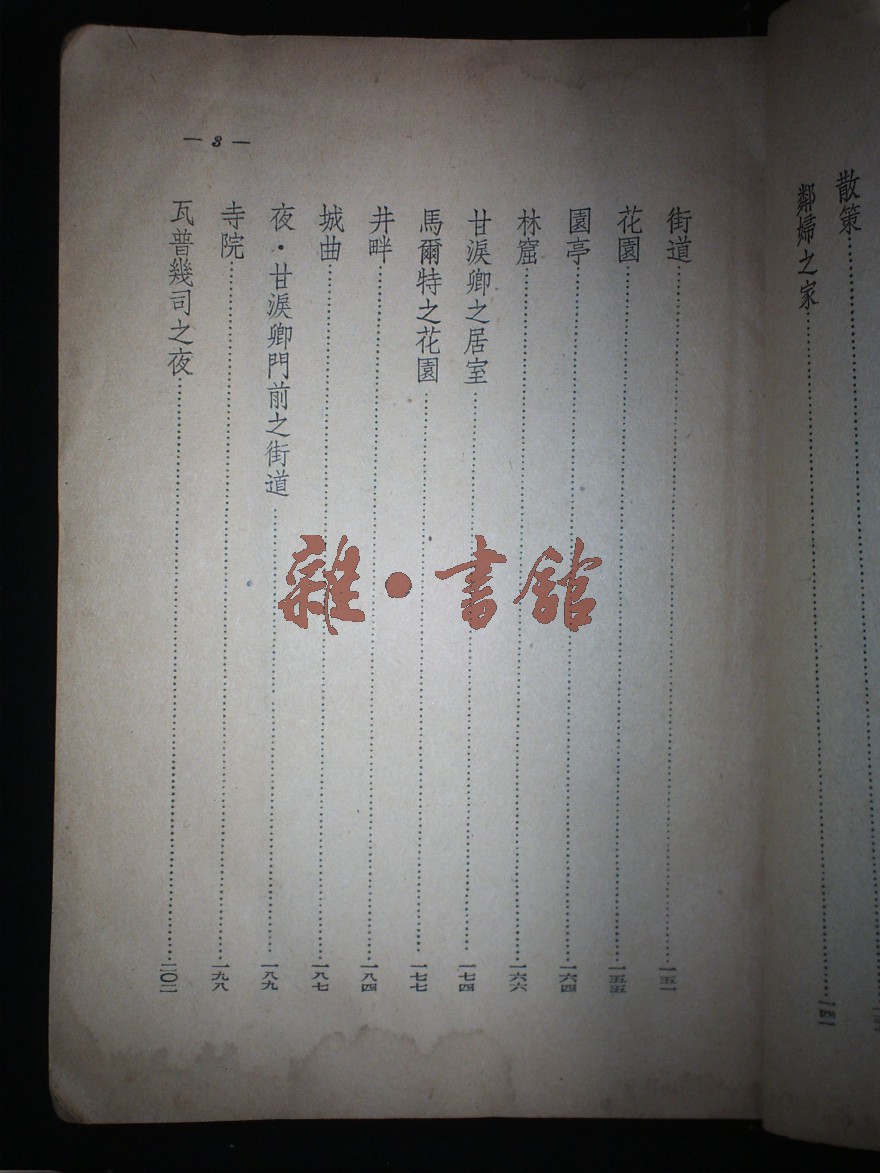 散策
鄰婦之家 一四一
— 3 —
街道 一五一
花園 一五五
園亭 一六四
林窟 一六六
甘淚卿之居室 一七四
馬爾特之花園 一七七
井畔 一八四
城曲 一八七
夜·甘淚卿門前之街道 一八九
寺院 一九八
瓦普幾司之夜 二〇二
雜·書館